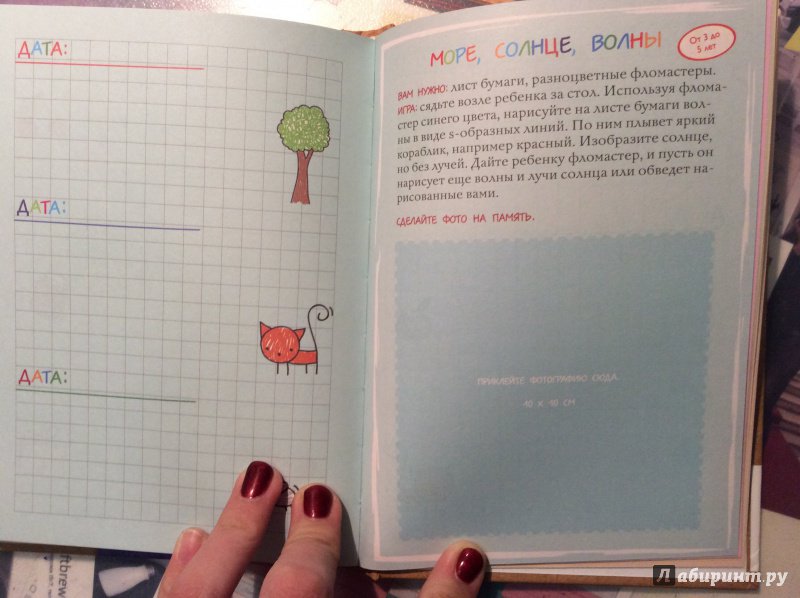 ДАТА:
ДАТА:
ДАТА:
МОРЕ, СОЛНЦЕ, ВОЛНЫ
От 3 до
5 лет
ВАМ НУЖНО: лист бумаги, разноцветные фломастеры.
ИГРА: сядьте возле ребенка за стол. Используя флома-
стер синего цвета, нарисуйте на листе бумаги вол-
ны в виде s-образных линий. По ним плывет яркий
кораблик, например красный. Изобразите солнце,
но без лучей. Дайте ребенку фломастер, и пусть он
нарисует еще волны и лучи солнца или обведет на-
рисованные вами.
СДЕЛАЙТЕ ФОТО НА ПАМЯТЬ.
ПРИКЛЕЙТЕ ФОТОГРАФИЮ СЮДА
10 X 10 СМ
ftbrew
Лабиринт.ру